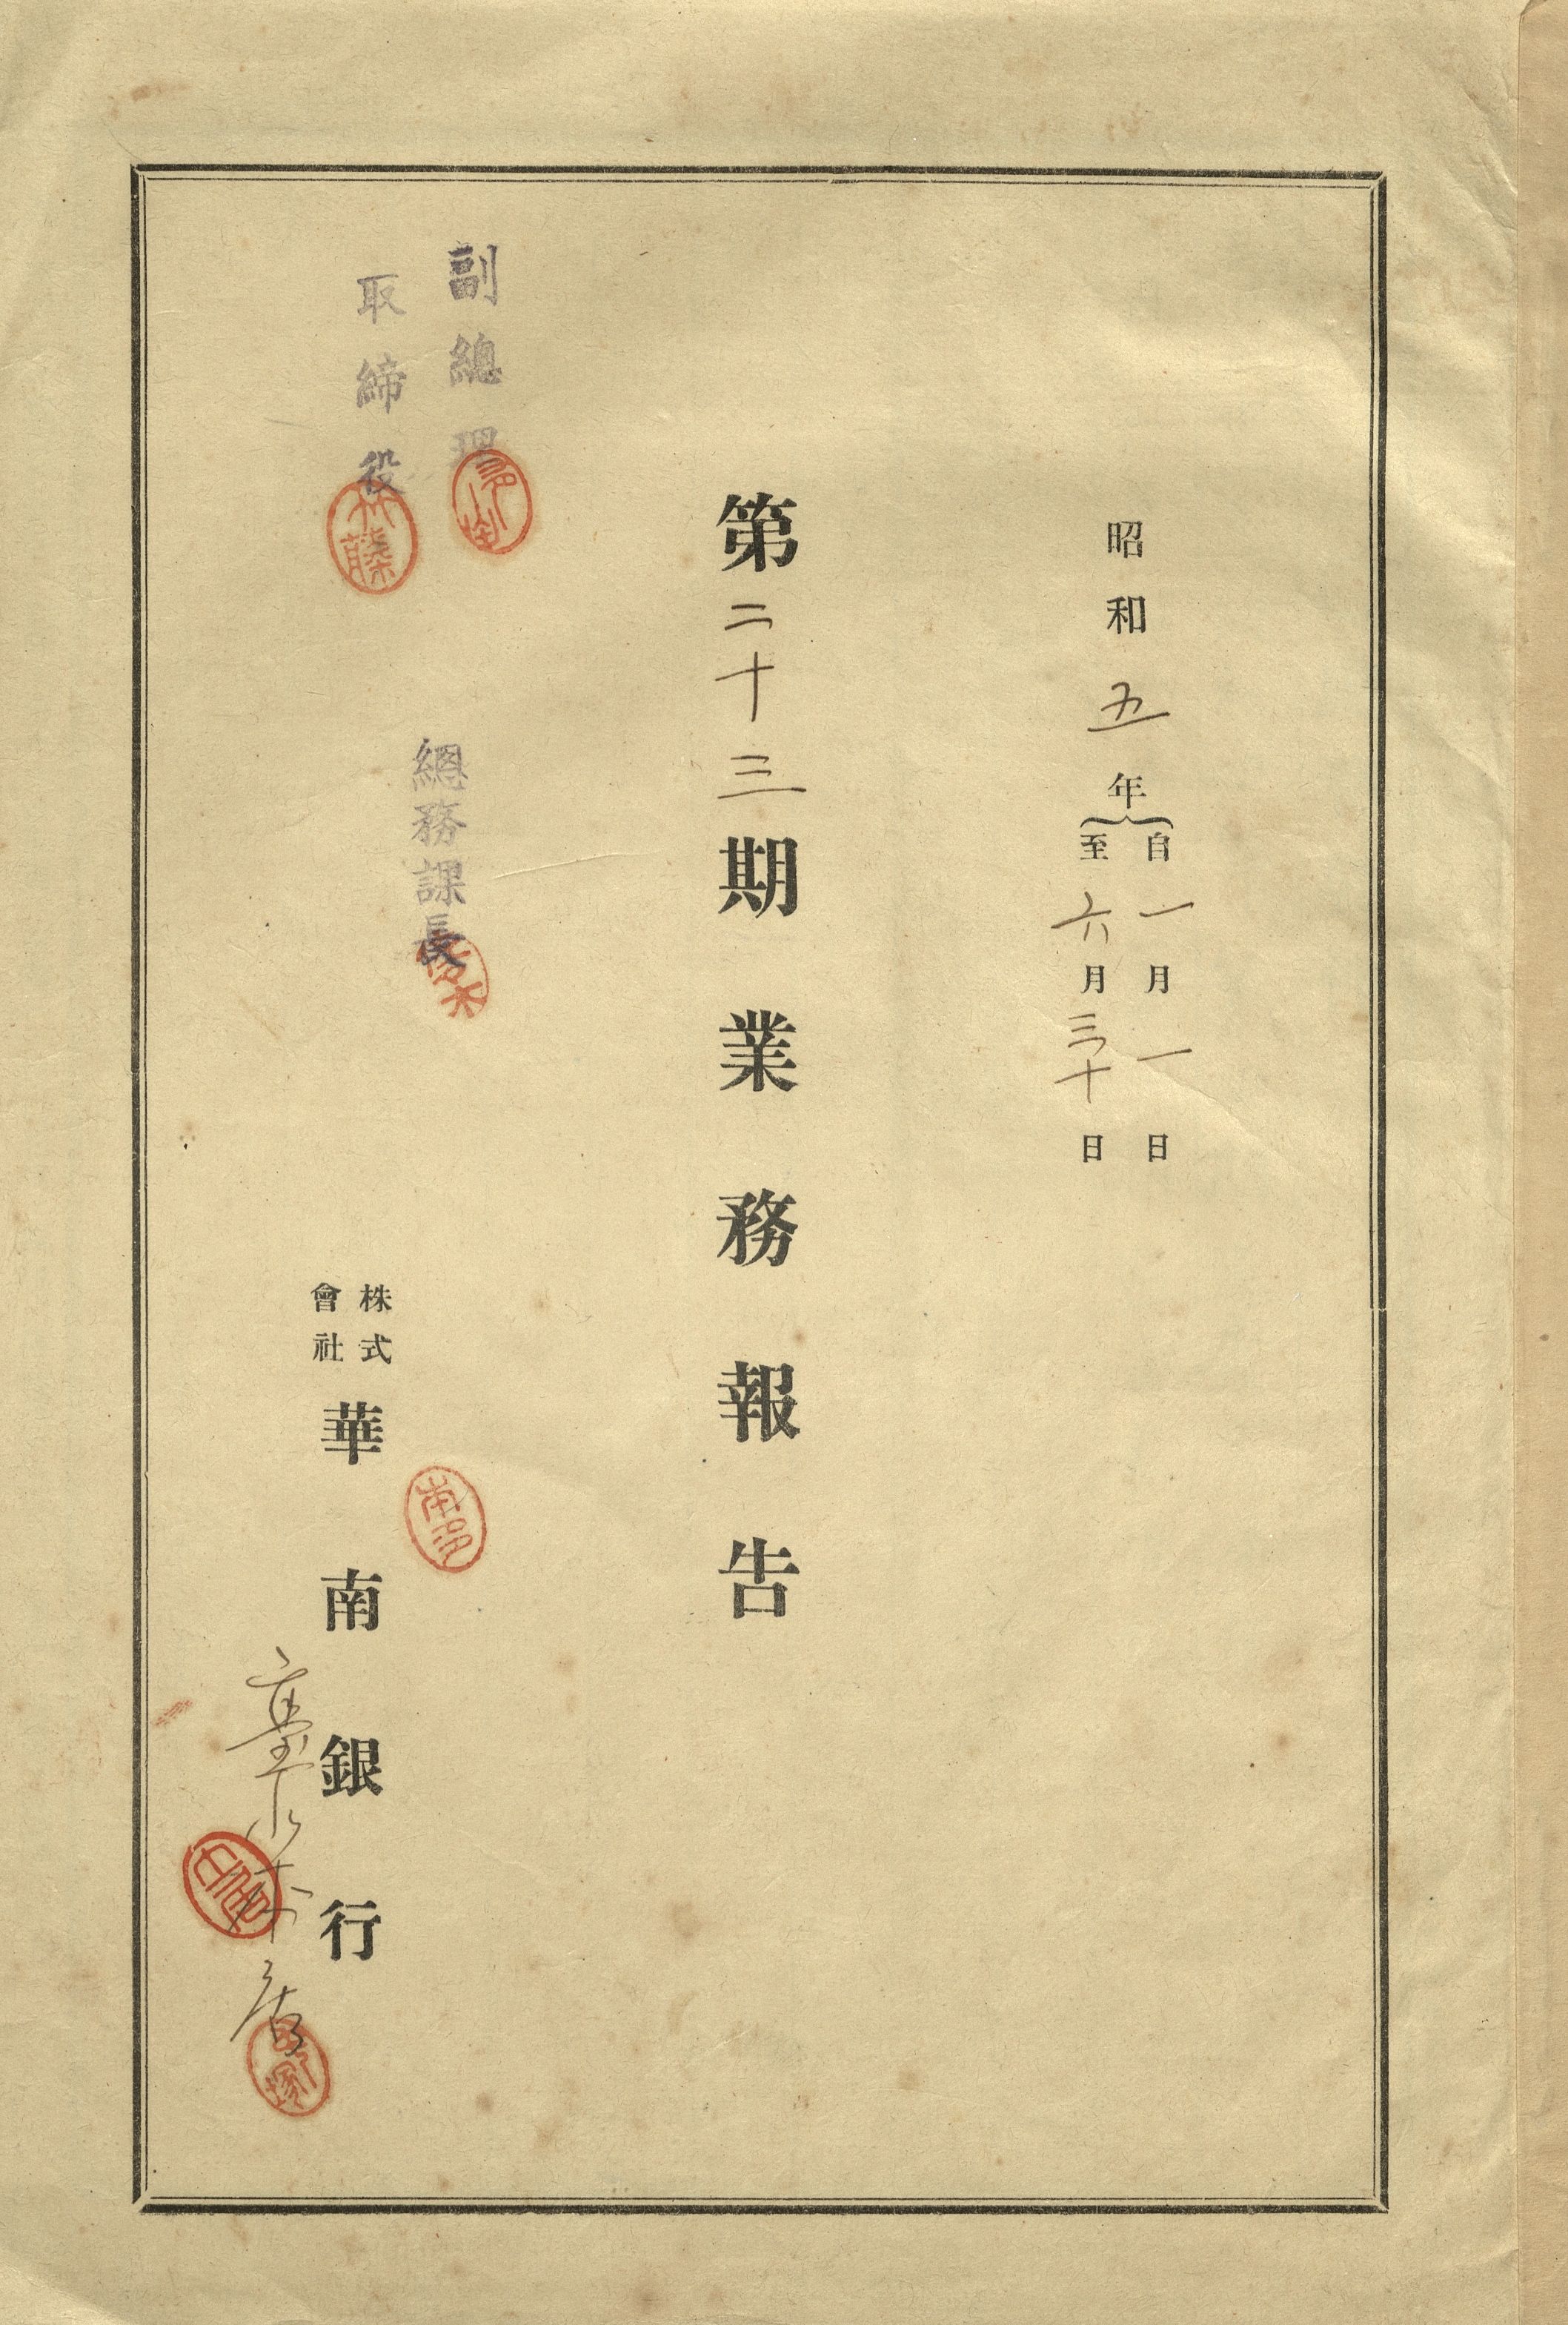 昭和五年
自一月一日
至六月三十日
第二十三期業務報告
副總理
取締役
總務課長
株式
會社
華南銀行
臺北本店